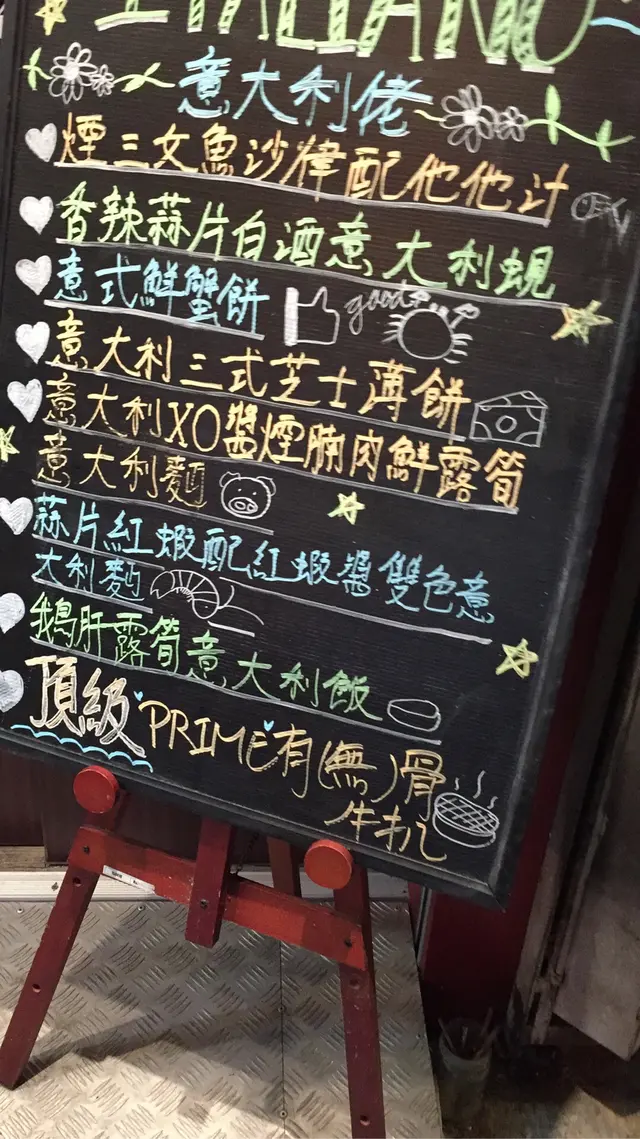 ITALIANO
意大利佬
煙三文魚沙律配他他汁
香辣蒜片白酒意大利蜆
意式鮮蟹餅 good
意大利三式芝士薄餅
意大利XO醬煙腩肉鮮露筍
意大利麵
蒜片紅蝦配紅蝦醬雙色意
大利麵
鵝肝露筍意大利飯
頂級 PRIME有(無)骨
牛扒